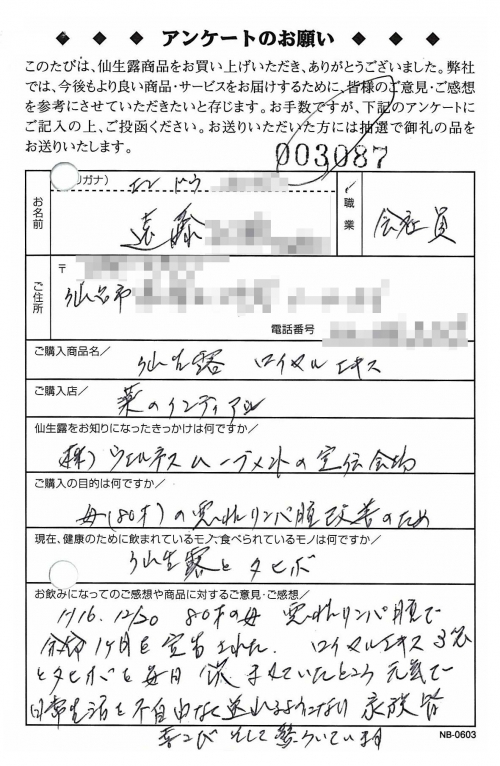 ◆ ◆ ◆ アンケートのお願い ◆ ◆ ◆
このたびは、仙生露商品をお買い上げいただき、ありがとうございました。弊社
では、今後もより良い商品・サービスをお届けするために、皆様のご意見・ご感想
を参考にさせていただきたいと存じます。お手数ですが、下記のアンケートに
ご記入の上、ご投函ください。お送りいただいた方には抽選で御礼の品を
お送りいたします。
003087
リガナ) エンドウ
お名前
遠藤
職業
会社員
ご住所
〒
仙台市
電話番号
ご購入商品名/
仙生露 ロイヤルエキス
ご購入店/
薬のインディアン
仙生露をお知りになったきっかけは何ですか/
(株)ウェルネスムーブメントの宣伝会場
ご購入の目的は何ですか/
母(80才)の悪性リンパ腫改善のため
現在、健康のために飲まれているモノ、食べられているモノは何ですか/
仙生露とタヒボ
お飲みになってのご感想や商品に対するご意見・ご感想/
H16.12/20 80才の母 悪性リンパ腫で
余命1ヶ月を宣告された. ロイヤルエキス3袋
とタヒボを毎日飲ませていたところ元気で
日常生活を不自由なく送れるようになり家族皆
喜こびそして驚ろいています
NB-0603